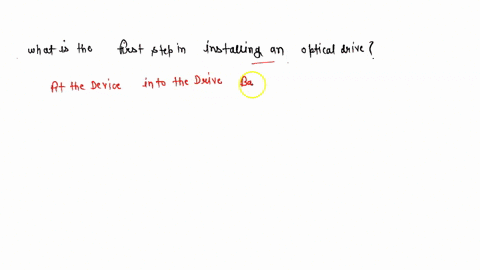 what is the first step in installing an optical drive?
At the Device into the Drive Ba